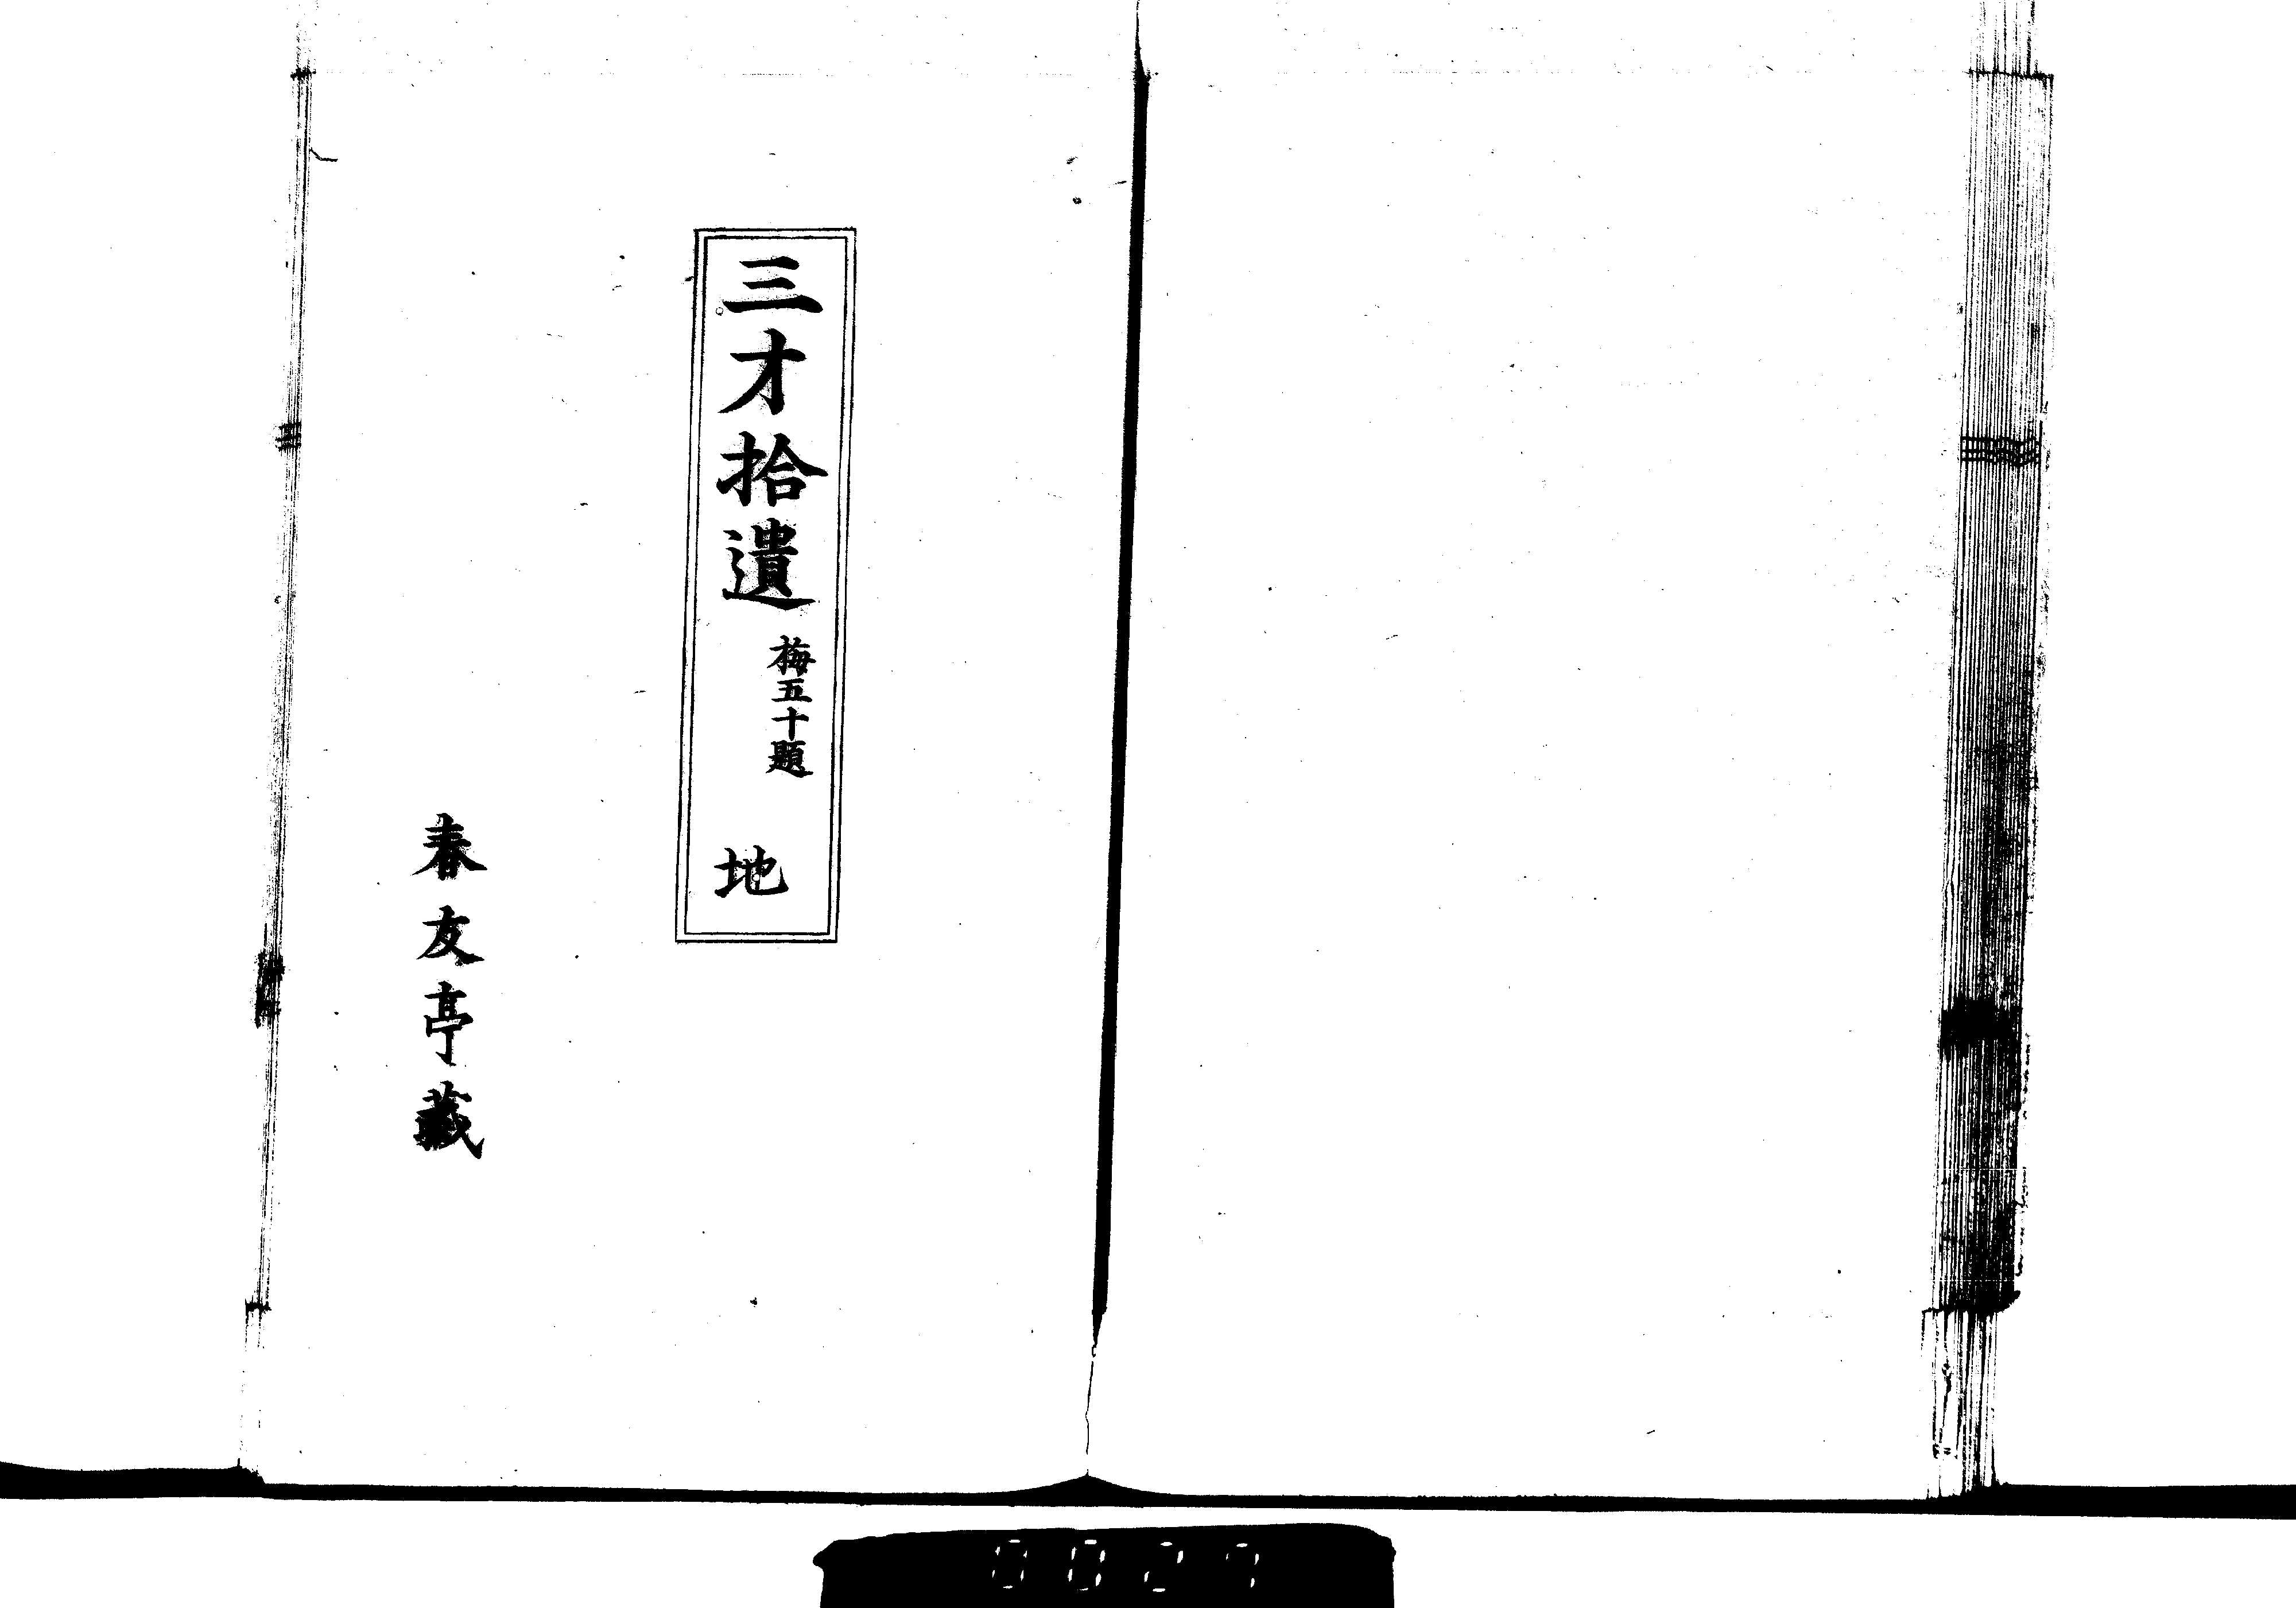 三才拾遺 梅五十題 地
春友亭藏
0027